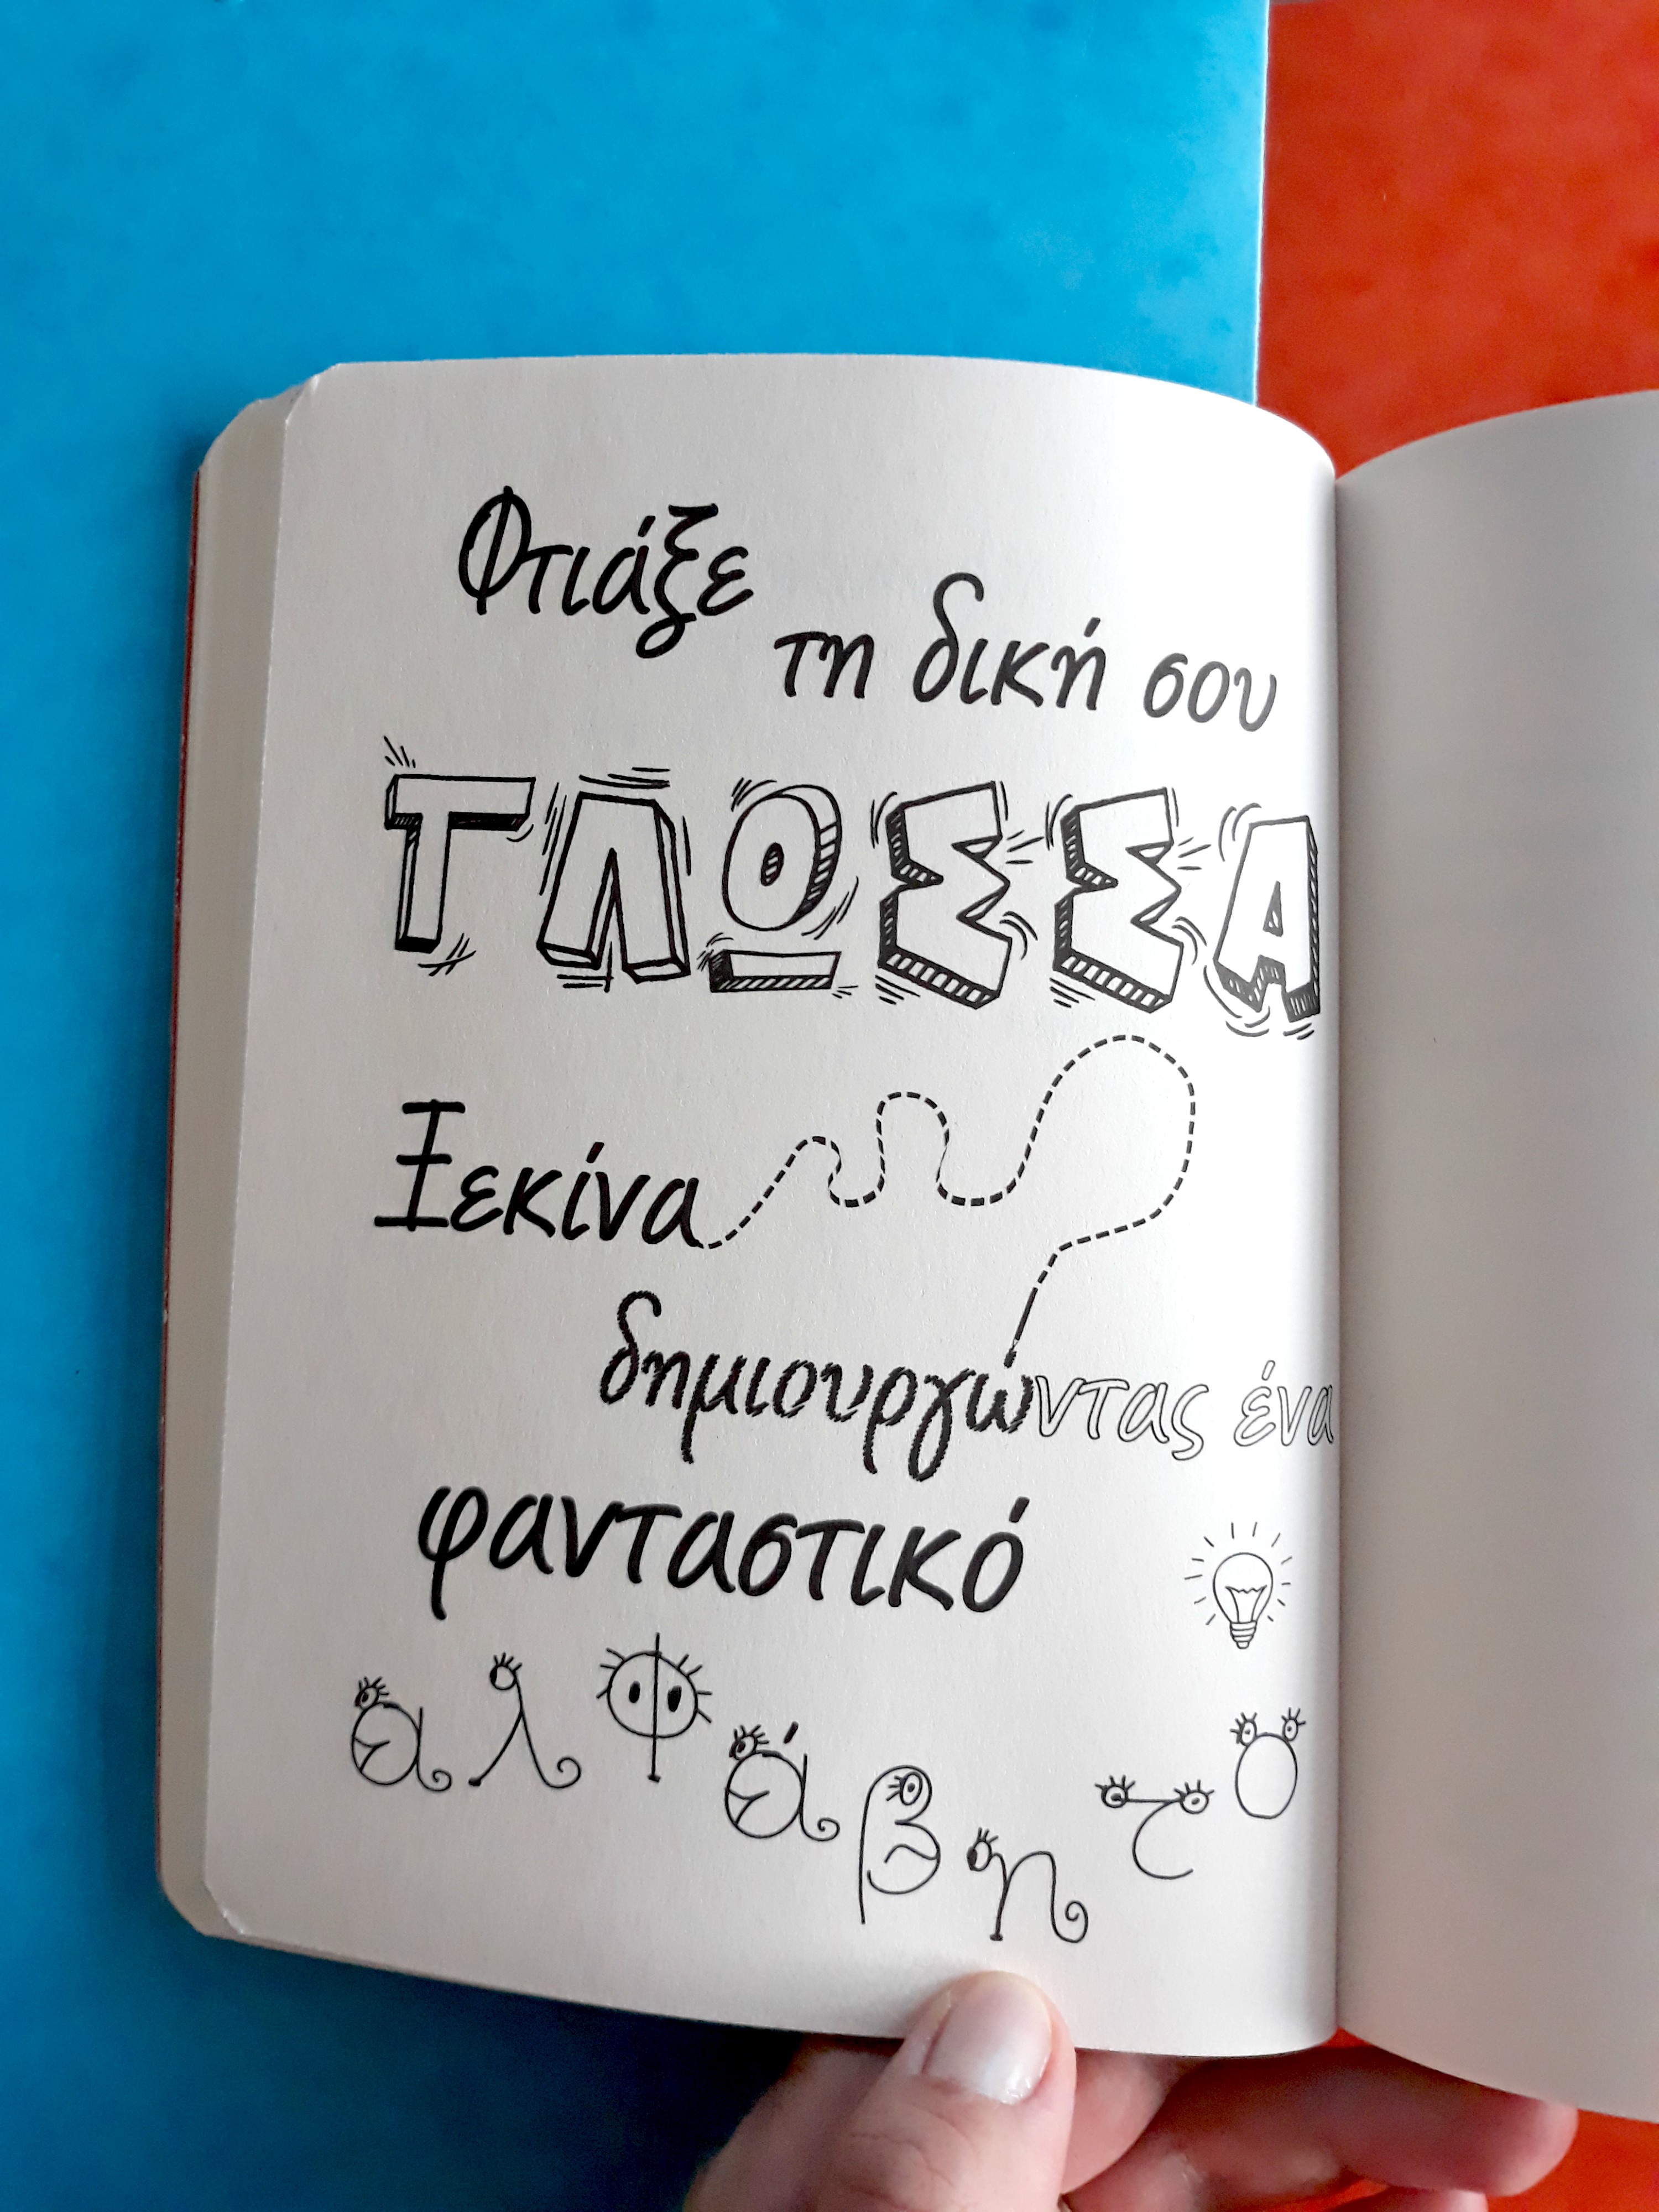 Φτιάξε
τη δική σου
ΓΛΩΣΣΑ
Ξεκίνα
δημιουργώντας ένα
φανταστικό
αλφάβητο